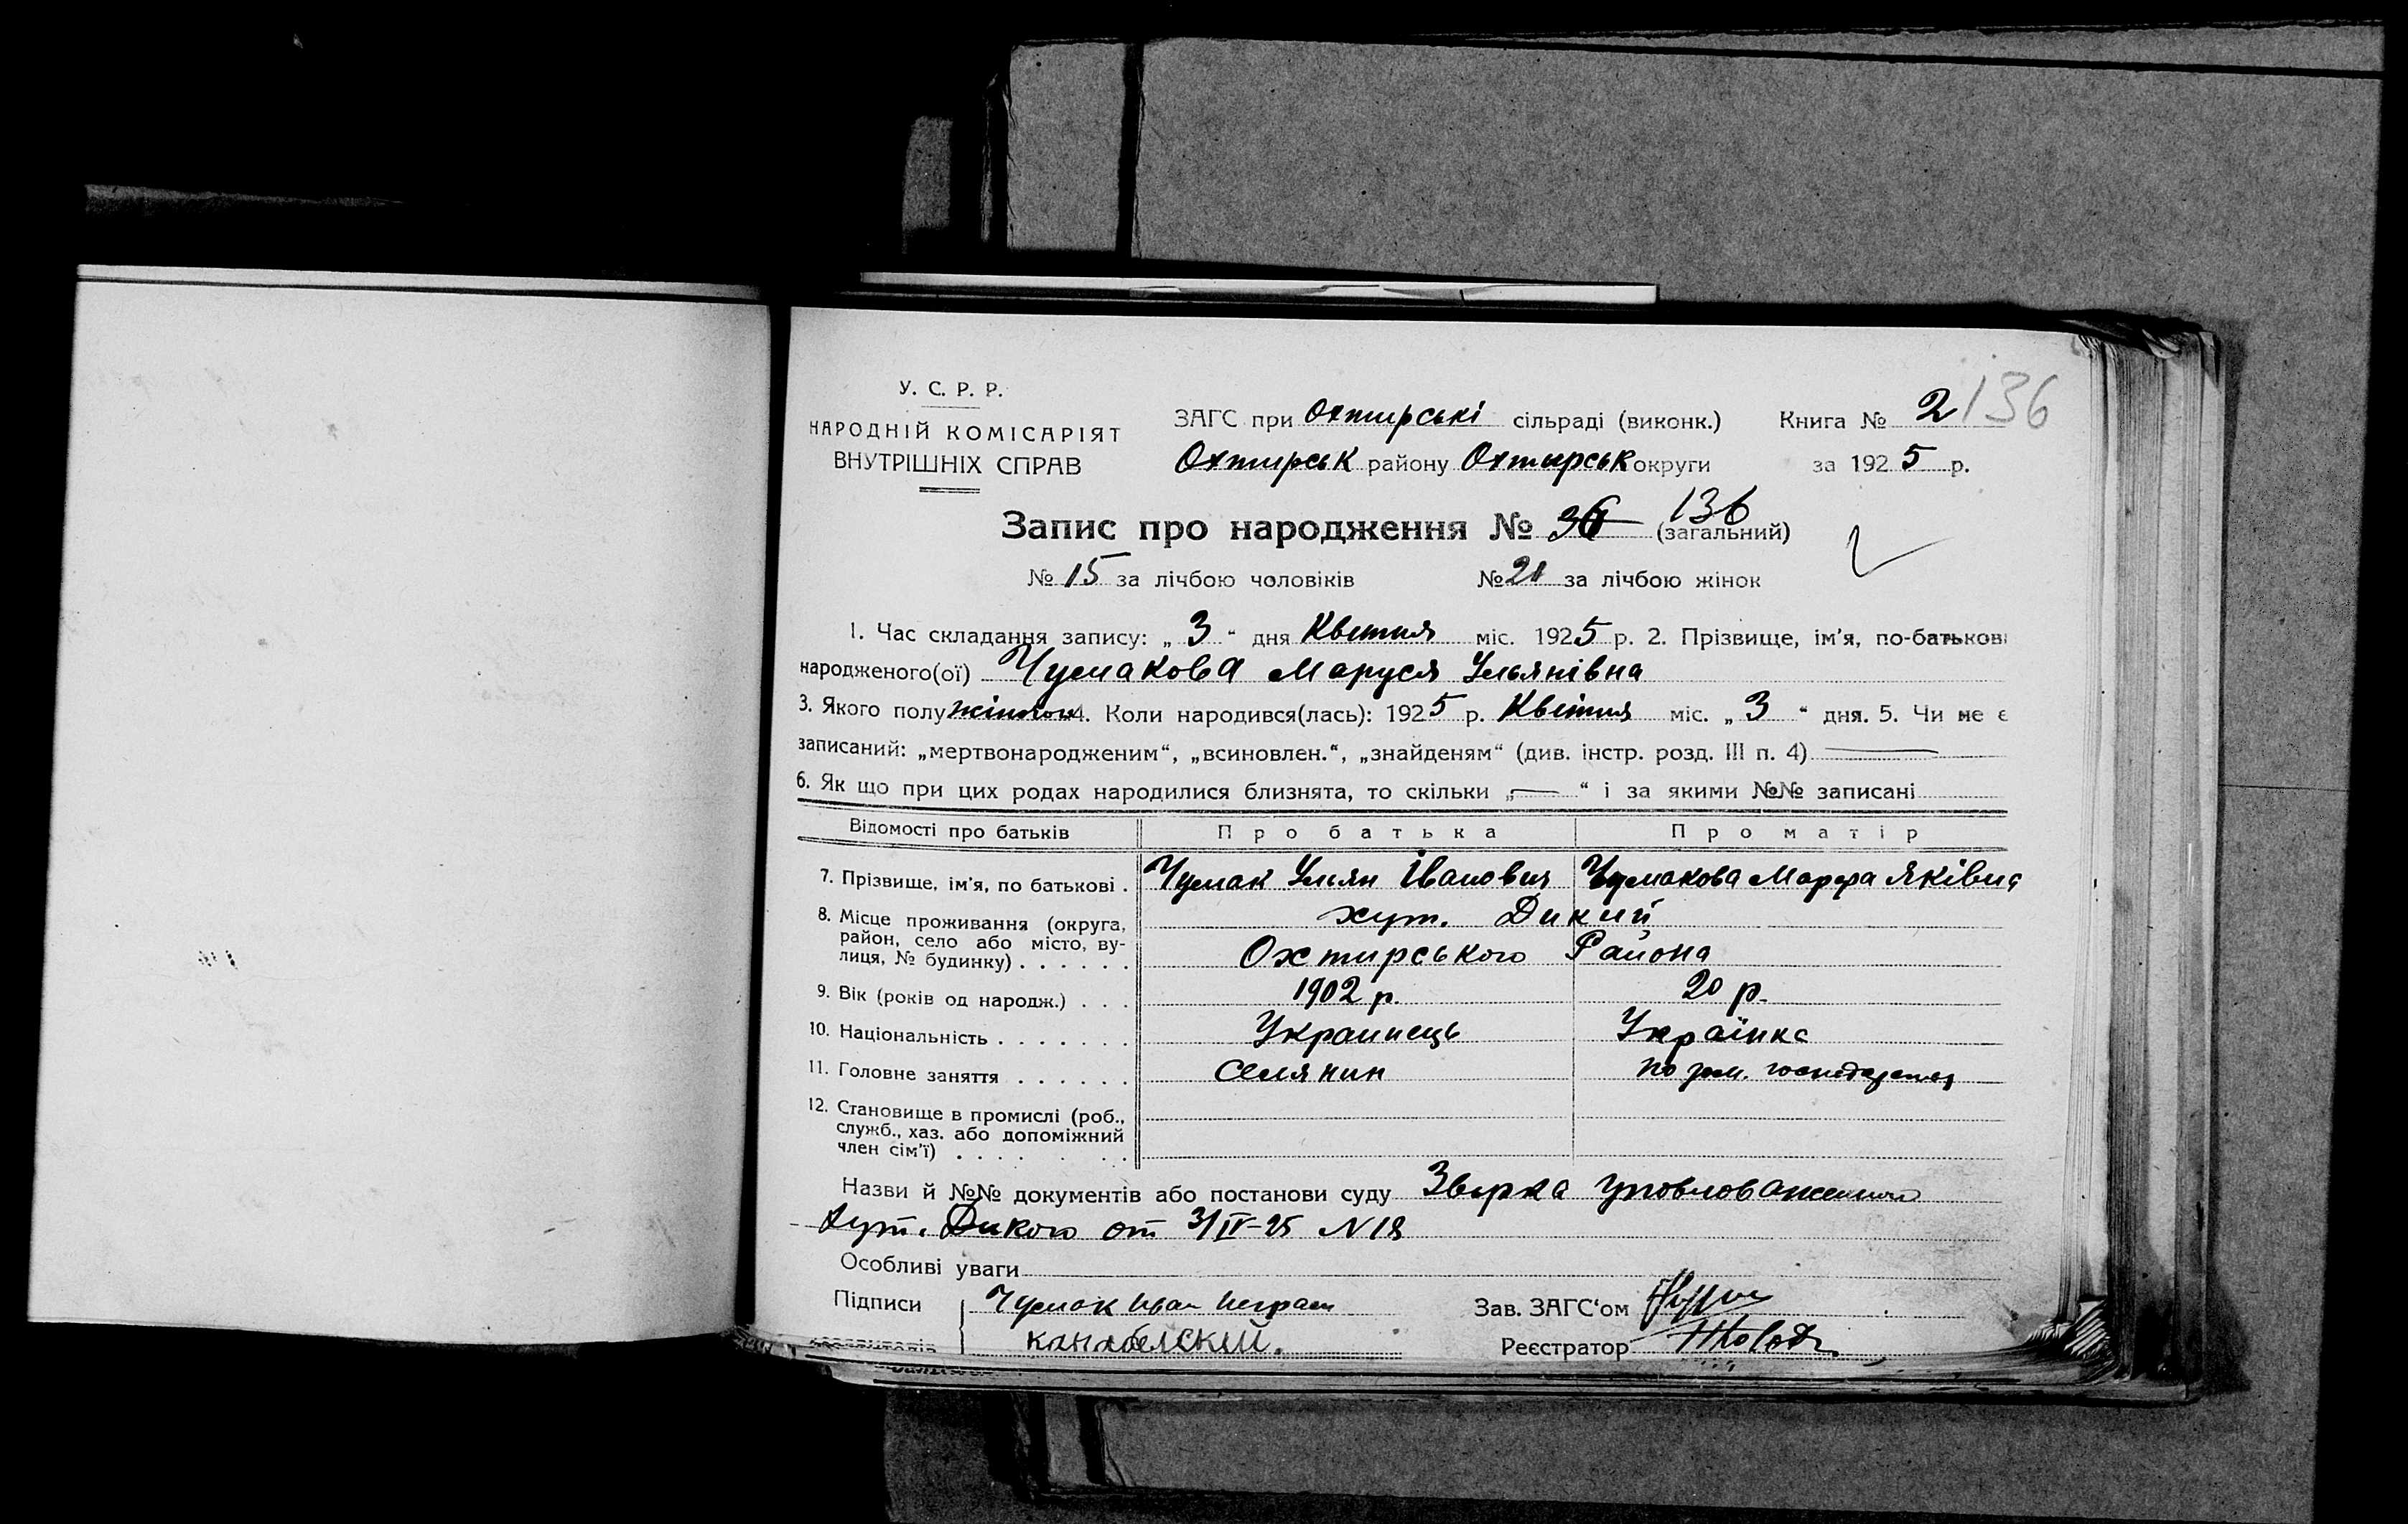 136
У. С. Р. Р.
НАРОДНІЙ КОМІСАРІЯТ
ВНУТРІШНІХ СПРАВ
ЗАГС при Охтирські сільраді (виконк.) Книга № 2
Охтирськ району Охтирськ округи за 1925 р.
Запис про народження № 36 136 (загальний)
№ 15 за лічбою чоловіків № 21 за лічбою жінок
1. Час складання запису: „ 3 “ дня Квітня міс. 1925 р. 2. Прізвище, ім’я, по-батькові
народженого(ої) Чумакова Маруся Ульянівна
3. Якого полу жіночої 4. Коли народився(лась): 1925 р. Квітня міс. „ 3 “ дня. 5. Чи не є
записаний: „мертвонародженим“, „всиновлен.“, „знайденям“ (див. інстр. розд. III п. 4)
6. Як що при цих родах народилися близнята, то скільки „ — “ і за якими №№ записані
Відомості про батьків Про батька Про матір
7. Прізвище, ім’я, по батькові . Чумак Ульян Іванович Чумакова Марфа Яківна
8. Місце проживання (округа, район, село або місто, ву-
лиця, № будинку) . . . . . .
хут. Дикий
Охтирського Района
9. Вік (років од народж.) . . . 1902 р. 20 р.
10. Національність . . . . . . . Украинець Українка
11. Головне заняття . . . . . . Селянин по
12. Становище в промислі (роб.,
служб., хаз. або допоміжний
член сім’ї) . . . . . . .
Назви й №№ документів або постанови суду Уповноваженого
хут. Дикого от 3/IV-25 N 18
Особливі уваги
Підписи Чумак Иван Зав. ЗАГС‘ом
Реєстратор